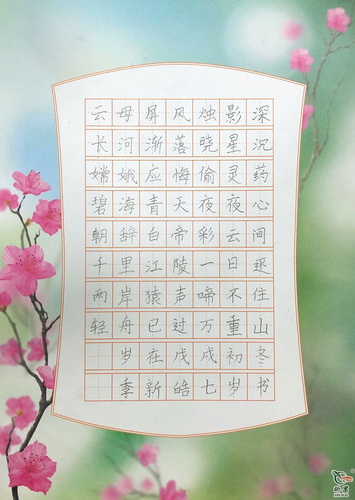 云母屏风烛影深
长河渐落晓星沉
嫦娥应悔偷灵药
碧海青天夜夜心
朝辞白帝彩云间
千里江陵一日还
两岸猿声啼不住
轻舟已过万重山
岁在戊戌初冬
季新皓七岁书